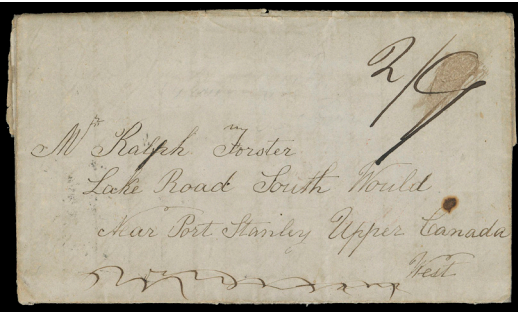 2/9
Mr Ralph Forster
Lake Road South Would
Near Port Stanley Upper Canada
West